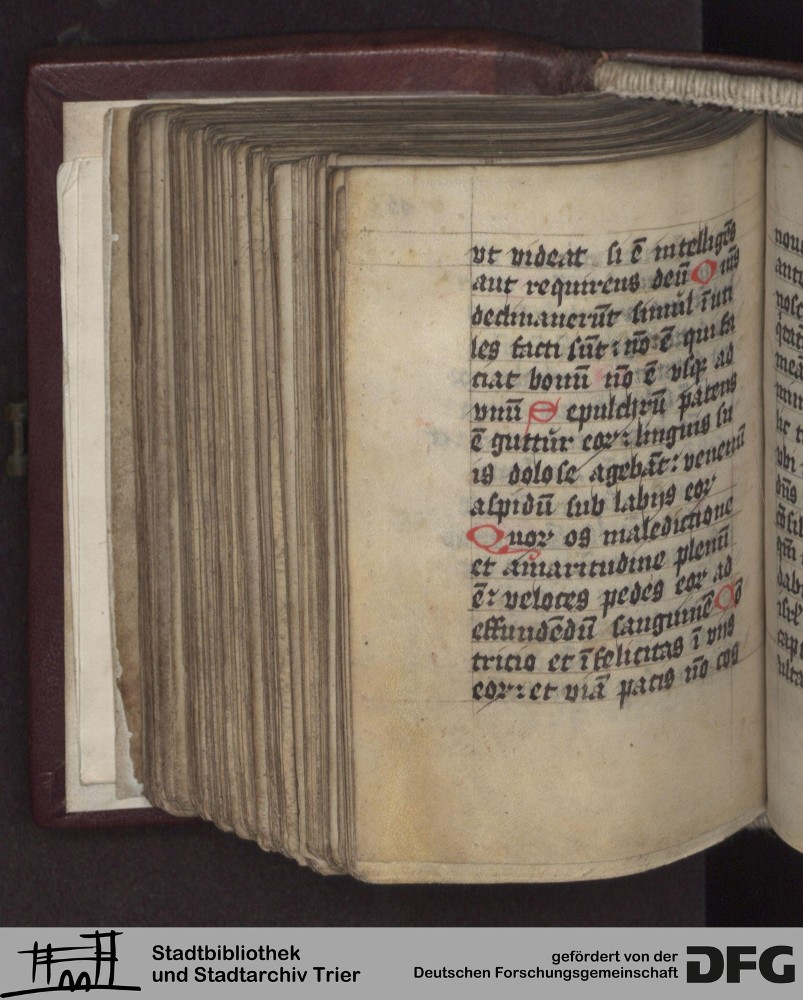 vt videat si ē intelligēs
aut requirens deū Om̄s
declinauerūt simul īuti
les facti sūt: nō ē qui fa
ciat bonū nō ē vsqꝫ ad
vnū Sepulchrū patens
ē guttur eoꝝ: linguis su
is dolose agebāt: venenū
aspidū sub labijs eoꝝ
Quoꝝ os maledictione
et amaritudine plenū
ē: veloces pedes eoꝝ ad
effundēdū sanguinē Cō
tricio et īfelicitas ī vijs
eoꝝ: et viā pacis nō cog
nou
Stadtbibliothek
und Stadtarchiv Trier
gefördert von der
Deutschen Forschungsgemeinschaft
DFG